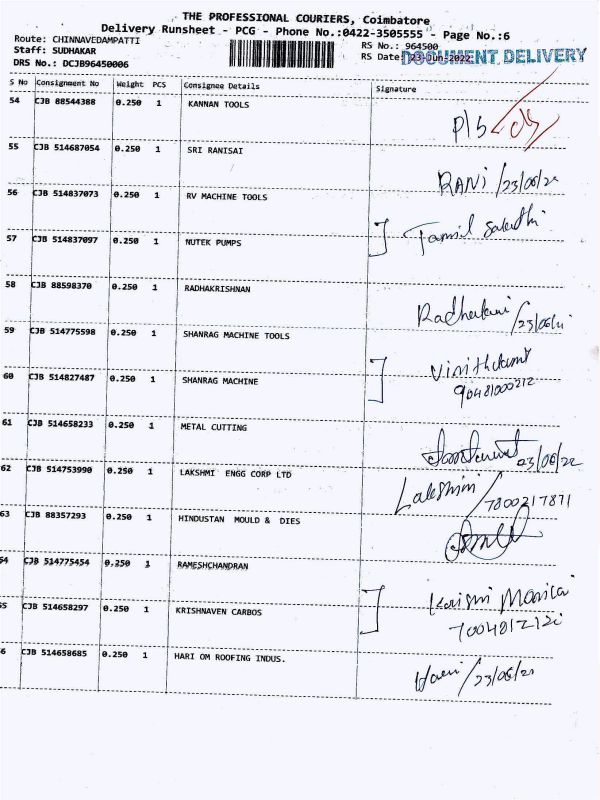 THE PROFESSIONAL COURIERS, Coimbatore
Delivery Runsheet - PCG - Phone No.:0422-3505555 - Page No.:6
Route: CHINNAVEDAMPATTI
RS No.: 964500
Staff: SUDHAKAR
RS Date: 23-Jun-2022
DOCUMENT DELIVERY
DRS No.: DCJB96450006
S No Consignment No Weight PCS Consignee Details Signature
54 CJB 88544388 0.250 1 KANNAN TOOLS
P/b
55 CJB 514687054 0.250 1 SRI RANISAI
RANI /23/06/22
56 CJB 514837073 0.250 1 RV MACHINE TOOLS
57 CJB 514837097 0.250 1 NUTEK PUMPS
58 CJB 88598370 0.250 1 RADHAKRISHNAN
59 CJB 514775598 0.250 1 SHANRAG MACHINE TOOLS
60 CJB 514827487 0.250 1 SHANRAG MACHINE
61 CJB 514658233 0.250 1 METAL CUTTING
62 CJB 514753990 0.250 1 LAKSHMI ENGG CORP LTD
Lakshmi / 7800217871
63 CJB 88357293 0.250 1 HINDUSTAN MOULD & DIES
64 CJB 514775454 0.250 1 RAMESHCHANDRAN
65 CJB 514658297 0.250 1 KRISHNAVEN CARBOS
66 CJB 514658685 0.250 1 HARI OM ROOFING INDUS.